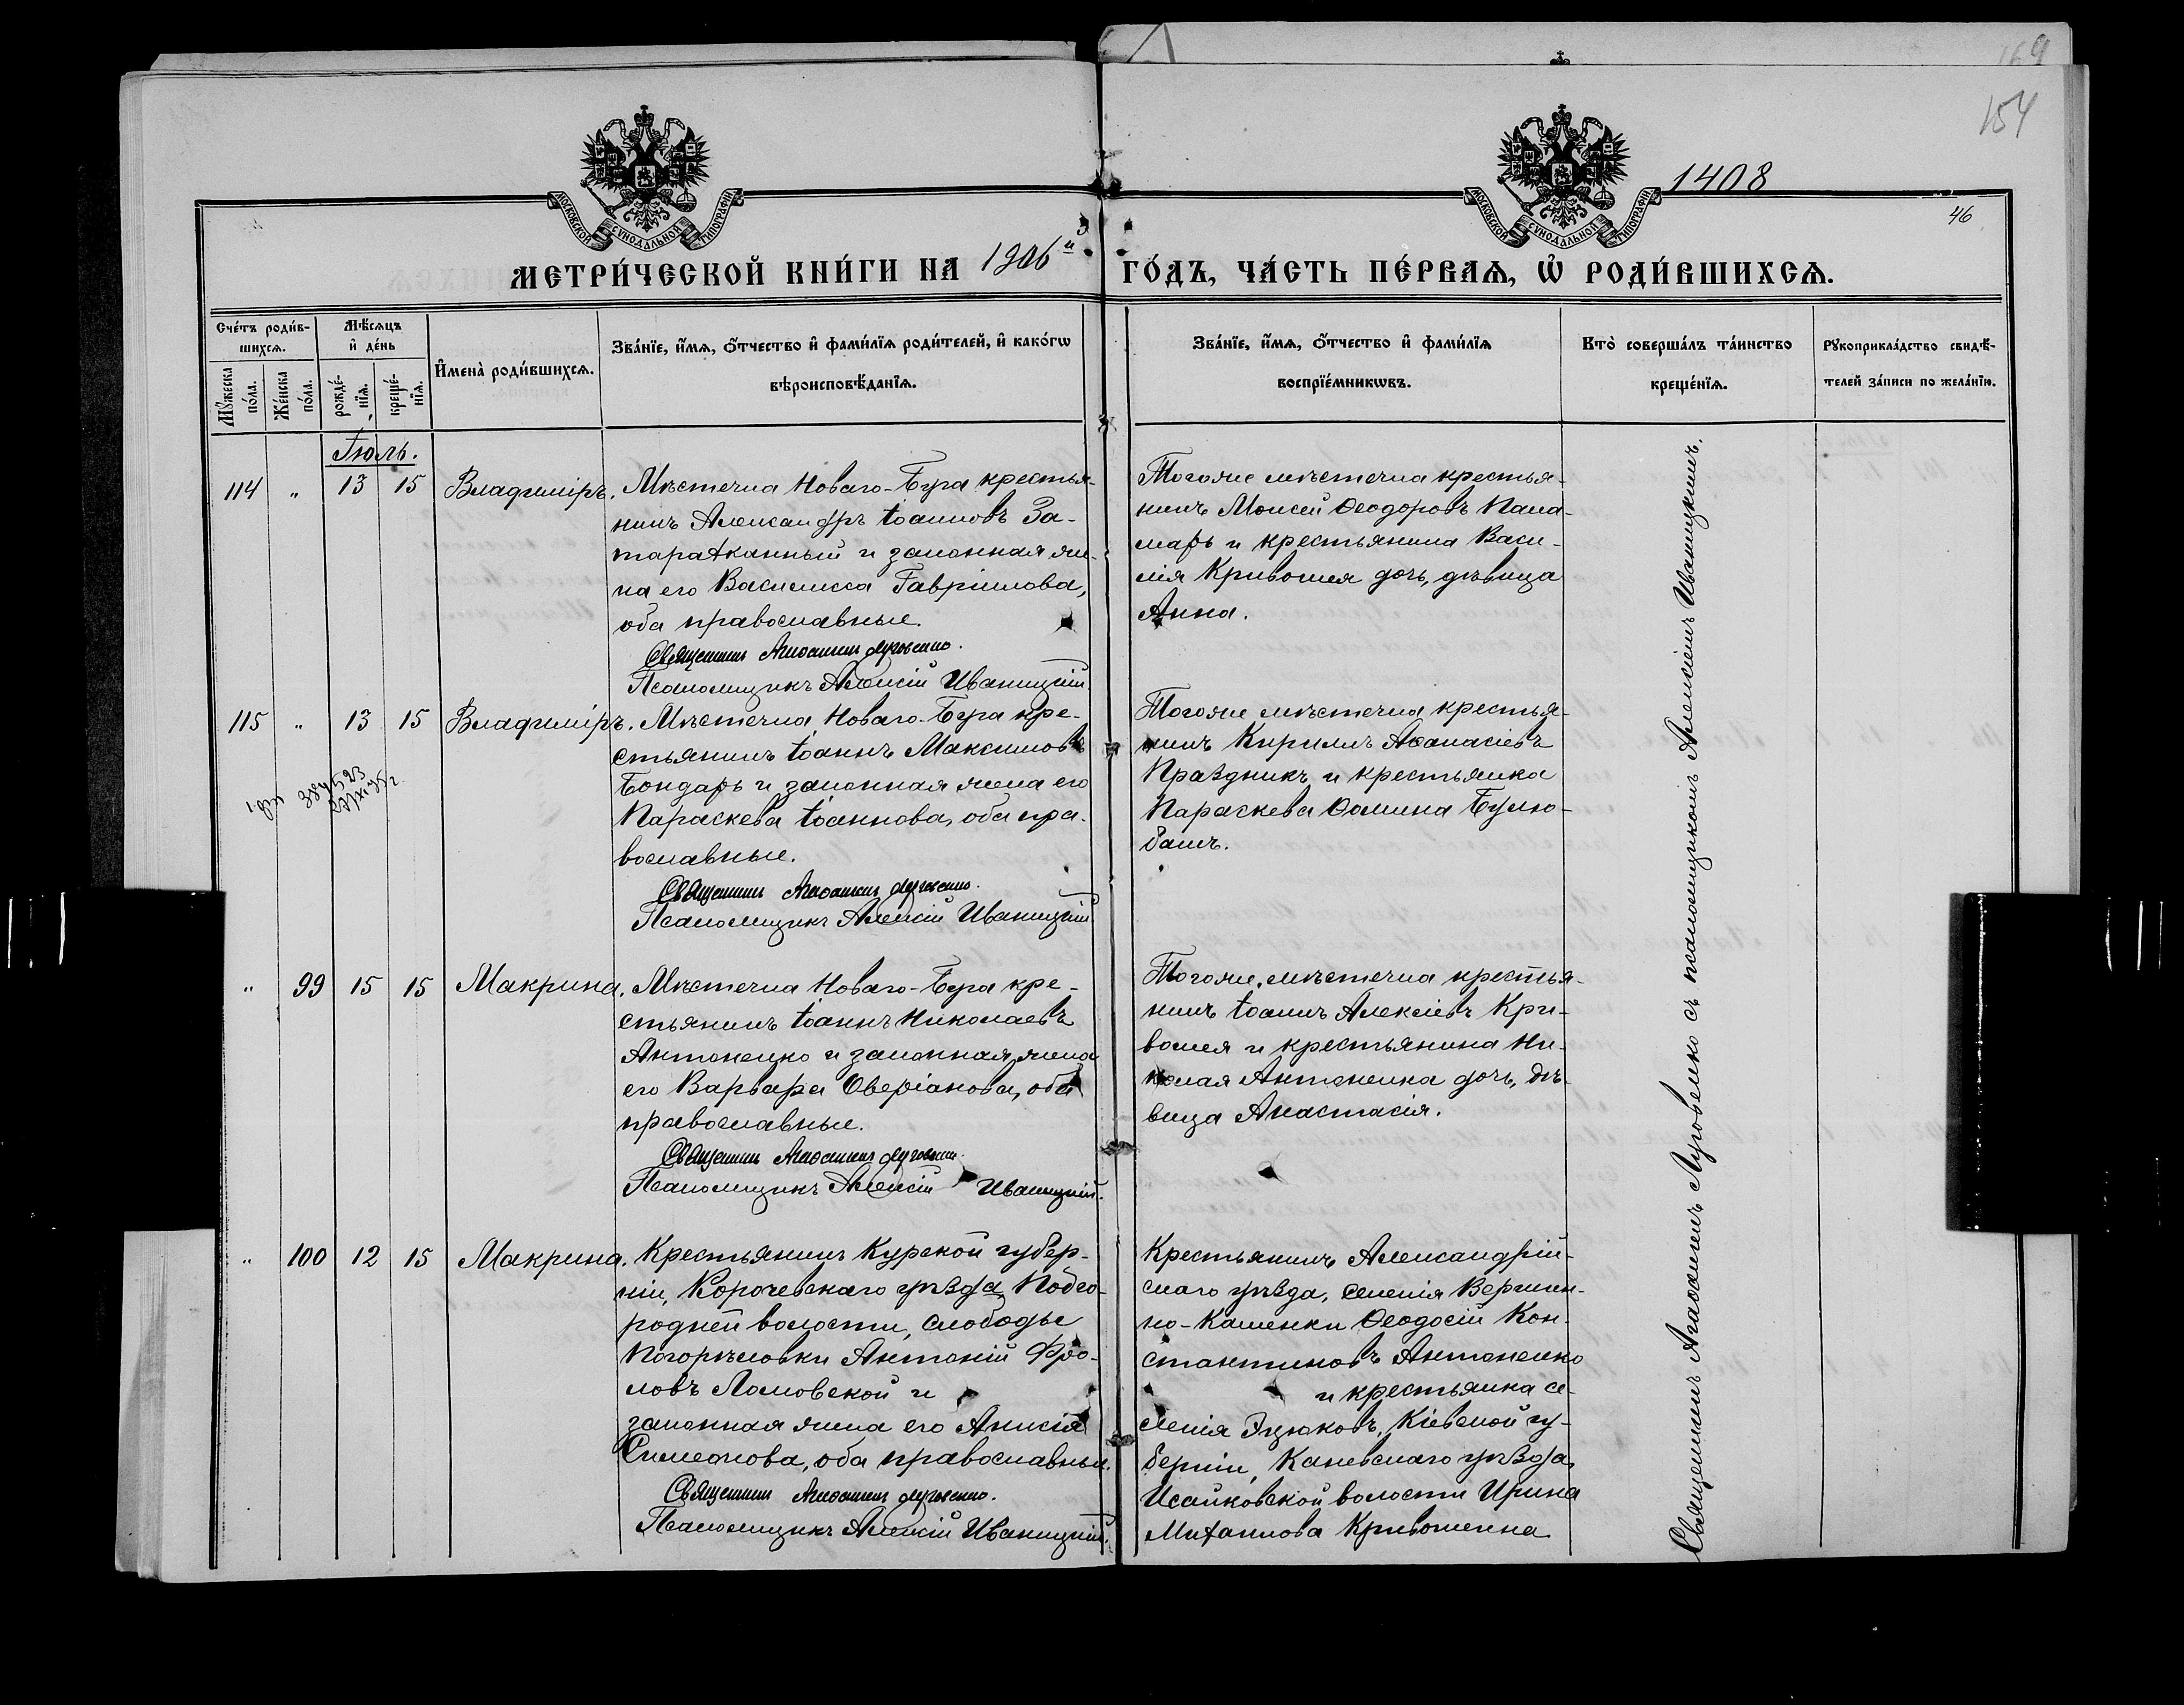 169
154
1408
46
МОСКОВСКОЙ СУНОДАЛЬНОЙ ТИПОГРАФІИ
МОСКОВСКОЙ СУНОДАЛЬНОЙ ТИПОГРАФІИ
МЕТРИ́ЧЕСКОЙ КНИ́ГИ НА 1906й ГО́ДЪ, ЧА́СТЬ ПЕ́РВАѦ, Ѡ҆ РОДИ́ВШИХСѦ.
Сче́тъ роди́в-
шихсѧ.
Мꙋ́жеска по́ла.
Же́нска по́ла.
Мѣ́сѧцъ
и҆ де́нь
рожде́-
нїѧ.
креще́-
нїѧ.
И҆мена̀ роди́вшихсѧ.
Зва́нїе, и҆́мѧ, ѻ҆́тчество и҆ фами́лїѧ роди́телей, и҆ како́гѡ
вѣроисповѣ́данїѧ.
Зва́нїе, и҆́мѧ, ѻ҆́тчество и҆ фами́лїѧ
воспрїе́мникѡвъ.
Кто̀ соверша́лъ та́инство
креще́нїѧ.
Рꙋкоприкла́дство свидѣ́-
телей за́писи по жела́нїю.
Іюль.
114 " 13 15 Владиміръ.
Мѣстечка Новаго-Буга крестья-
нинъ Александръ Іоанновъ За-
тараканный и законная же-
на его Василисса Гавріилова,
оба православные.
Священникъ Агаѳангелъ Луговенко.
Псаломщикъ Алексій Иваницкій.
Тогоже мѣстечка крестья-
нинъ Моисей Ѳеодоровъ Пала-
марь и крестьянина Васи-
лія Кривошея дочь, дѣвица
Анна.
115 " 13 15 Владиміръ.
Мѣстечка Новаго-Буга кре-
стьянинъ Іоаннъ Максимовъ
Бондарь и законная жена его
Параскева Іоаннова, оба пра-
вославные.
Священникъ Агаѳангелъ Луговенко.
Псаломщикъ Алексій Иваницкій
Тогоже мѣстечка крестья-
нинъ Кириллъ Аѳанасіевъ
Праздникъ и крестьянка
Параскева Ѳомина Булю-
башъ.
" 99 15 15 Макрина.
Мѣстечка Новаго-Буга кре-
стьянинъ Іоаннъ Николаевъ
Антоненко и законная жена
его Варвара Оверіанова, оба
православные.
Священникъ Агаѳангелъ Луговенко.
Псаломщикъ Алексій Иваницкій.
Тогоже мѣстечка крестья-
нинъ Іоаннъ Алексіевъ Кри-
вошея и крестьянина Ни-
колая Антоненка дочь, дѣ-
вица Анастасія.
" 100 12 15 Макрина.
Крестьянинъ Курской губер-
ніи, Корочевскаго уѣзда, Подго-
родней волости, слободы
Погорѣловки Антоній Фро-
ловъ Ломовской и
законная жена его Анисія
Симеонова, оба православные.
Священникъ Агаѳангелъ Луговенко.
Псаломщикъ Алексій Иваницкій.
Крестьянинъ Александрій-
скаго уѣзда, селенія Вершин-
но-Каменки Ѳеодосій Кон-
стантиновъ Антоненко
и крестьянка се-
ленія Кіевской гу-
берніи, Каневскаго уѣзда,
Исайковской волости Ирина
Михаилова Кривошеина
Священникъ Агаѳангелъ Луговенко съ псаломщикомъ Алексіемъ Иваницкимъ.